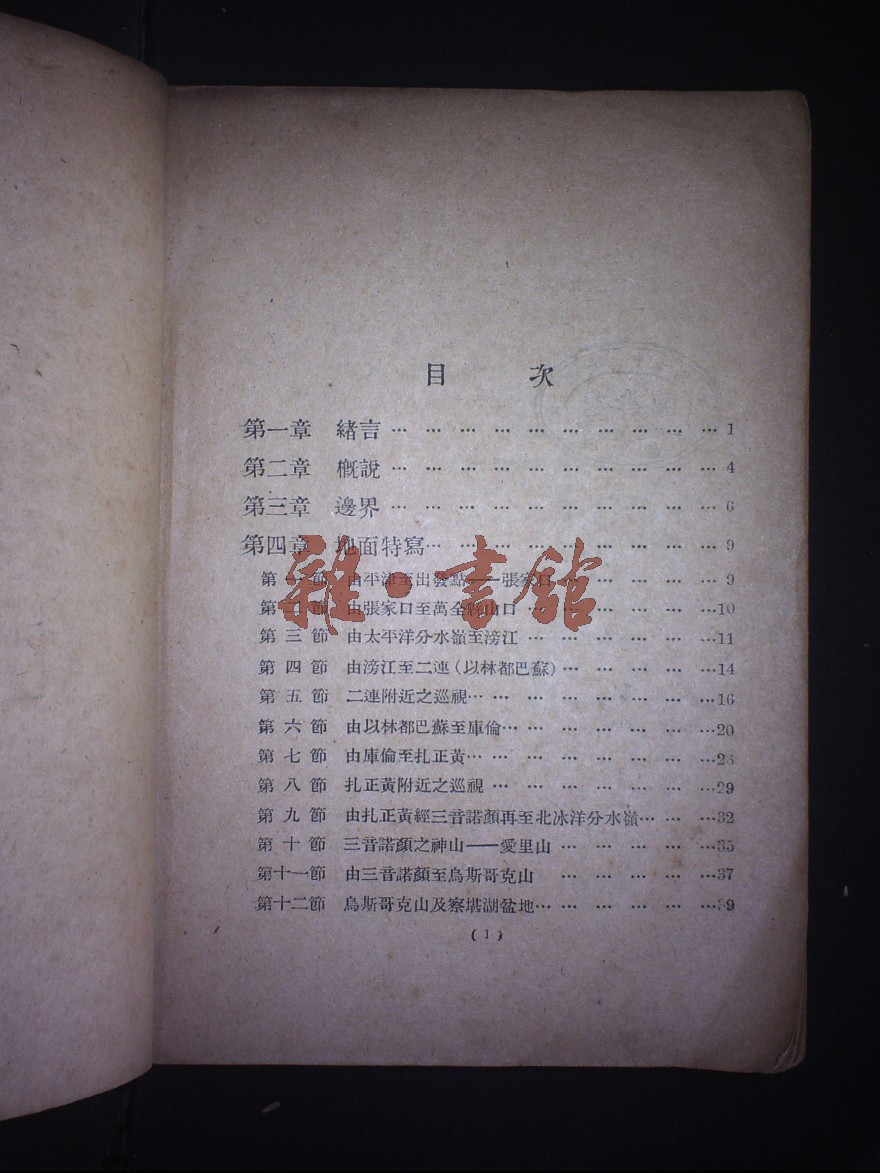 目 次
第一章 緒言 … … … … … … … … … … 1
第二章 概說 … … … … … … … … … … 4
第三章 邊界 … … … … … … … … … … 6
第四章 地面特寫 … … … … … … … … … 9
第一節 由平津至出發點——張家口 … … … … … 9
第二節 由張家口至萬全縣山口 … … … … … … 10
第三節 由太平洋分水嶺至滂江 … … … … … … 11
第四節 由滂江至二連(以林都巴蘇) … … … … … 14
第五節 二連附近之巡視 … … … … … … … … 16
第六節 由以林都巴蘇至庫倫 … … … … … … … 20
第七節 由庫倫至扎正黃 … … … … … … … … 23
第八節 扎正黃附近之巡視 … … … … … … … 29
第九節 由扎正黃經三音諾顏再至北冰洋分水嶺 … … … 32
第十節 三音諾顏之神山——愛里山 … … … … … 35
第十一節 由三音諾顏至烏斯哥克山 … … … … … 37
第十二節 烏斯哥克山及察堪湖盆地 … … … … … … 39
(1)
雜·書館